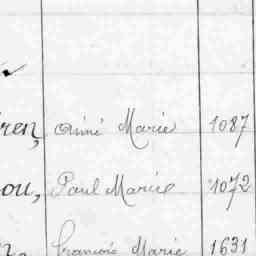 ren, Aimé Marie 1087
ou, Paul Marie 1072
François Marie 1631